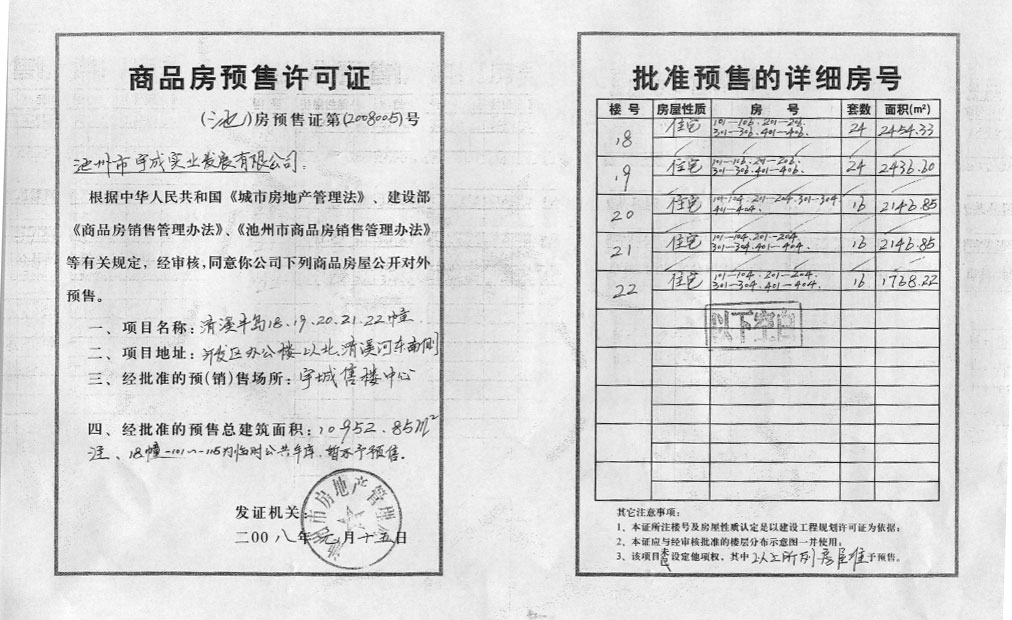 商品房预售许可证
(池)房预售证第(2008005)号
池州市宇成实业发展有限公司:
根据中华人民共和国《城市房地产管理法》、建设部
《商品房销售管理办法》、《池州市商品房销售管理办法》
等有关规定,经审核,同意你公司下列商品房屋公开对外
预售。
一、项目名称:清溪半岛18.19.20.21.22幢
二、项目地址:开发区办公楼以北、清溪河东南侧
三、经批准的预(销)售场所:宇城售楼中心
四、经批准的预售总建筑面积:10952.85m²
注、18幢-101~-115为临时公共车库,暂不予预售.
发证机关:
市房地产管理
二00八年元月十五日
批准预售的详细房号
楼 号 房屋性质 房 号 套数 面积(m²)
18 住宅 101—106.201—206. 301—306.401—406. 24 2454.33
19 住宅 101—106.201—206. 301—306.401—406. 24 2436.60
20 住宅 101—104.201—204.301—304 401—404. 16 2146.85
21 住宅 101—104.201—204. 301—304.401—404. 16 2146.85
22 住宅 101—104.201—204. 301—304.401—404. 16 1768.22
以下空白
其它注意事项:
1、本证所注楼号及房屋性质认定是以建设工程规划许可证为依据;
2、本证应与经审核批准的楼层分布示意图一并使用;
3、该项目设定他项权,其中以上所列房屋准予预售。